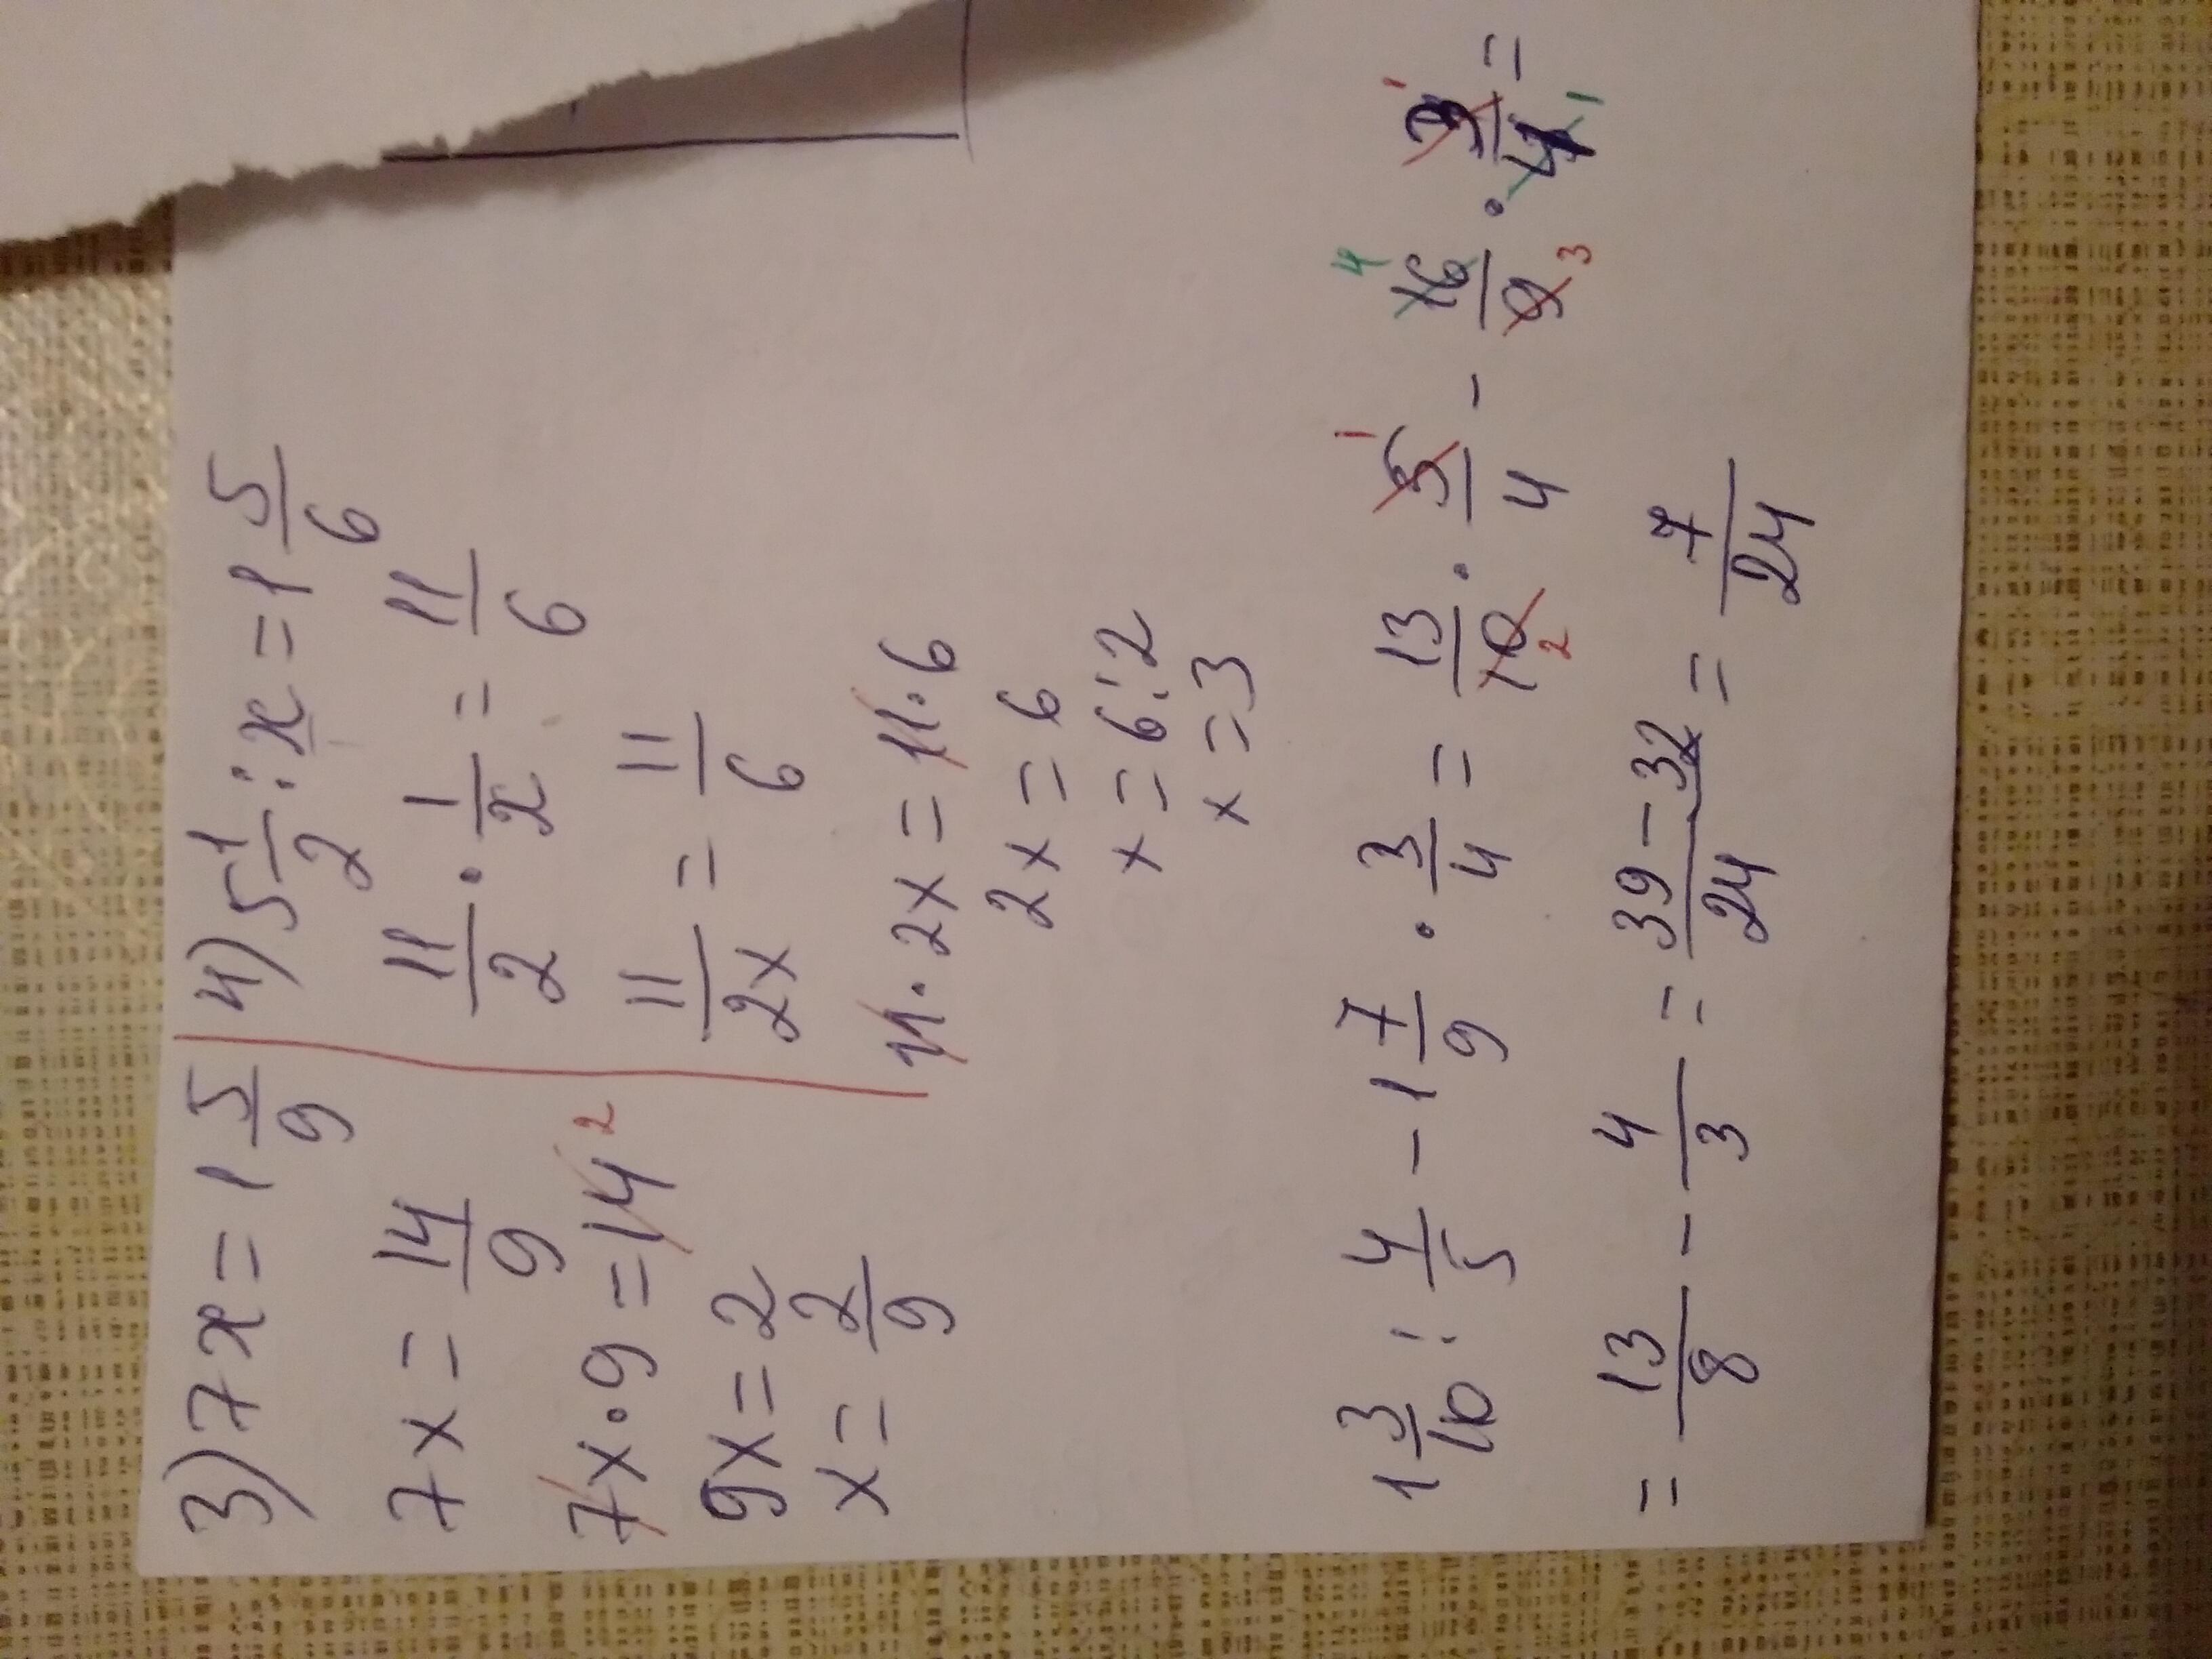 3) 7x = 1 5/9
7x = 14/9
7x · 9 = 14 2
9x = 2
x = 2/9
4) 5 1/2 : x = 1 5/6
11/2 · 1/x = 11/6
11/2x = 11/6
11 · 2x = 11 · 6
2x = 6
x = 6 : 2
x = 3
1 3/10 : 4/5 - 1 7/9 · 3/4 = 13/10 2 · 5/4 1 - 16/9 4 3 · 3/4 1 1 =
= 13/8 - 4/3 = 39 - 32/24 = 7/24